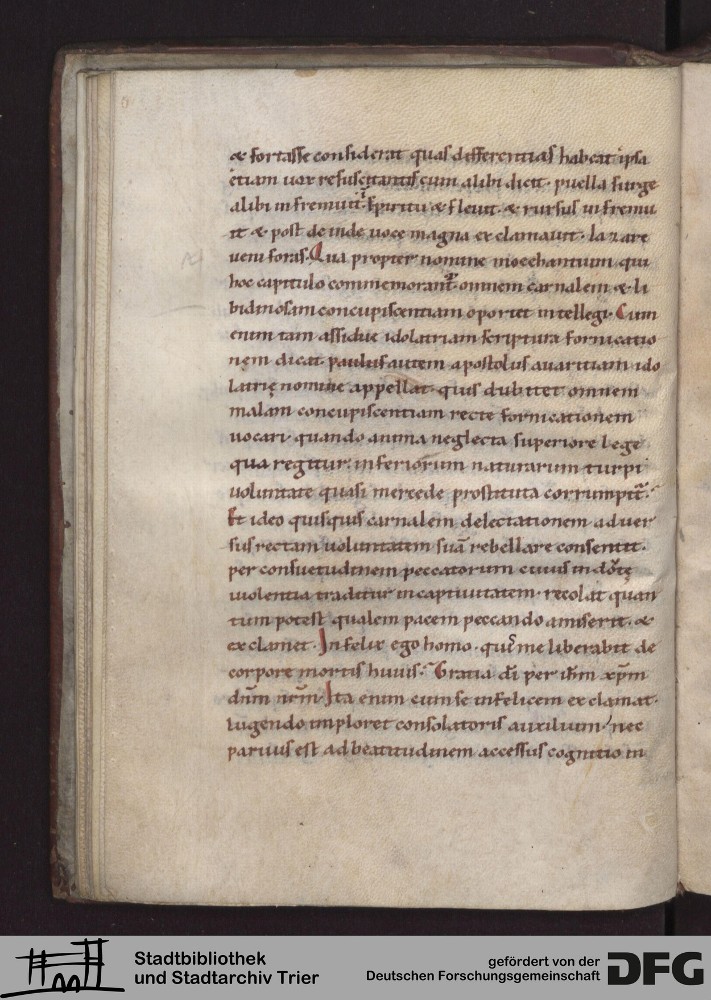 & fortasse considerat quas differentias habeat ipsa
etiam uox resuscitantis cum alibi dicit· puella surge
alibi infremuit spiritu & fleuit· & rursus infremu
it & post deinde uoce magna exclamauit· lazare
ueni foras· Qua propter nomine moechantium qui
hoc capitulo commemorant᷑ omnem carnalem & li
bidinosam concupiscentiam oportet intellegi· Cum
enim tam assidue idolatriam scriptura fornicatio
nęm dicat· paulus autem apostolus auaritiam ido
latrię nomine appellat· quis dubitet omnem
malam concupiscentiam recte fornicationem
uocari· quando anima neglecta superiore lege
qua regitur· inferiorum naturarum turpi
uoluntate quasi mercede prostituta corrumpit᷑·
Et ideo quisquis carnalem delectationem aduer
sus rectam uoluntatem suā rebellare consentit·
per consuetudinem peccatorum cuius indōtę
uiolentia traditur in captiuitatem· recolat quan
tum potest qualem pacem peccando amiserit· &
exclamet· Infelix ego homo· quis me liberabit de
corpore mortis huius· Gratia dī per ihm̄ xp̄m
dn̄m nr̄m· Ita enim cum se infelicem exclamat·
lugendo imploret consolatoris auxilium· nec
paruus est ad beatitudinem accessus cognitio in
Stadtbibliothek
und Stadtarchiv Trier
gefördert von der
Deutschen Forschungsgemeinschaft
DFG